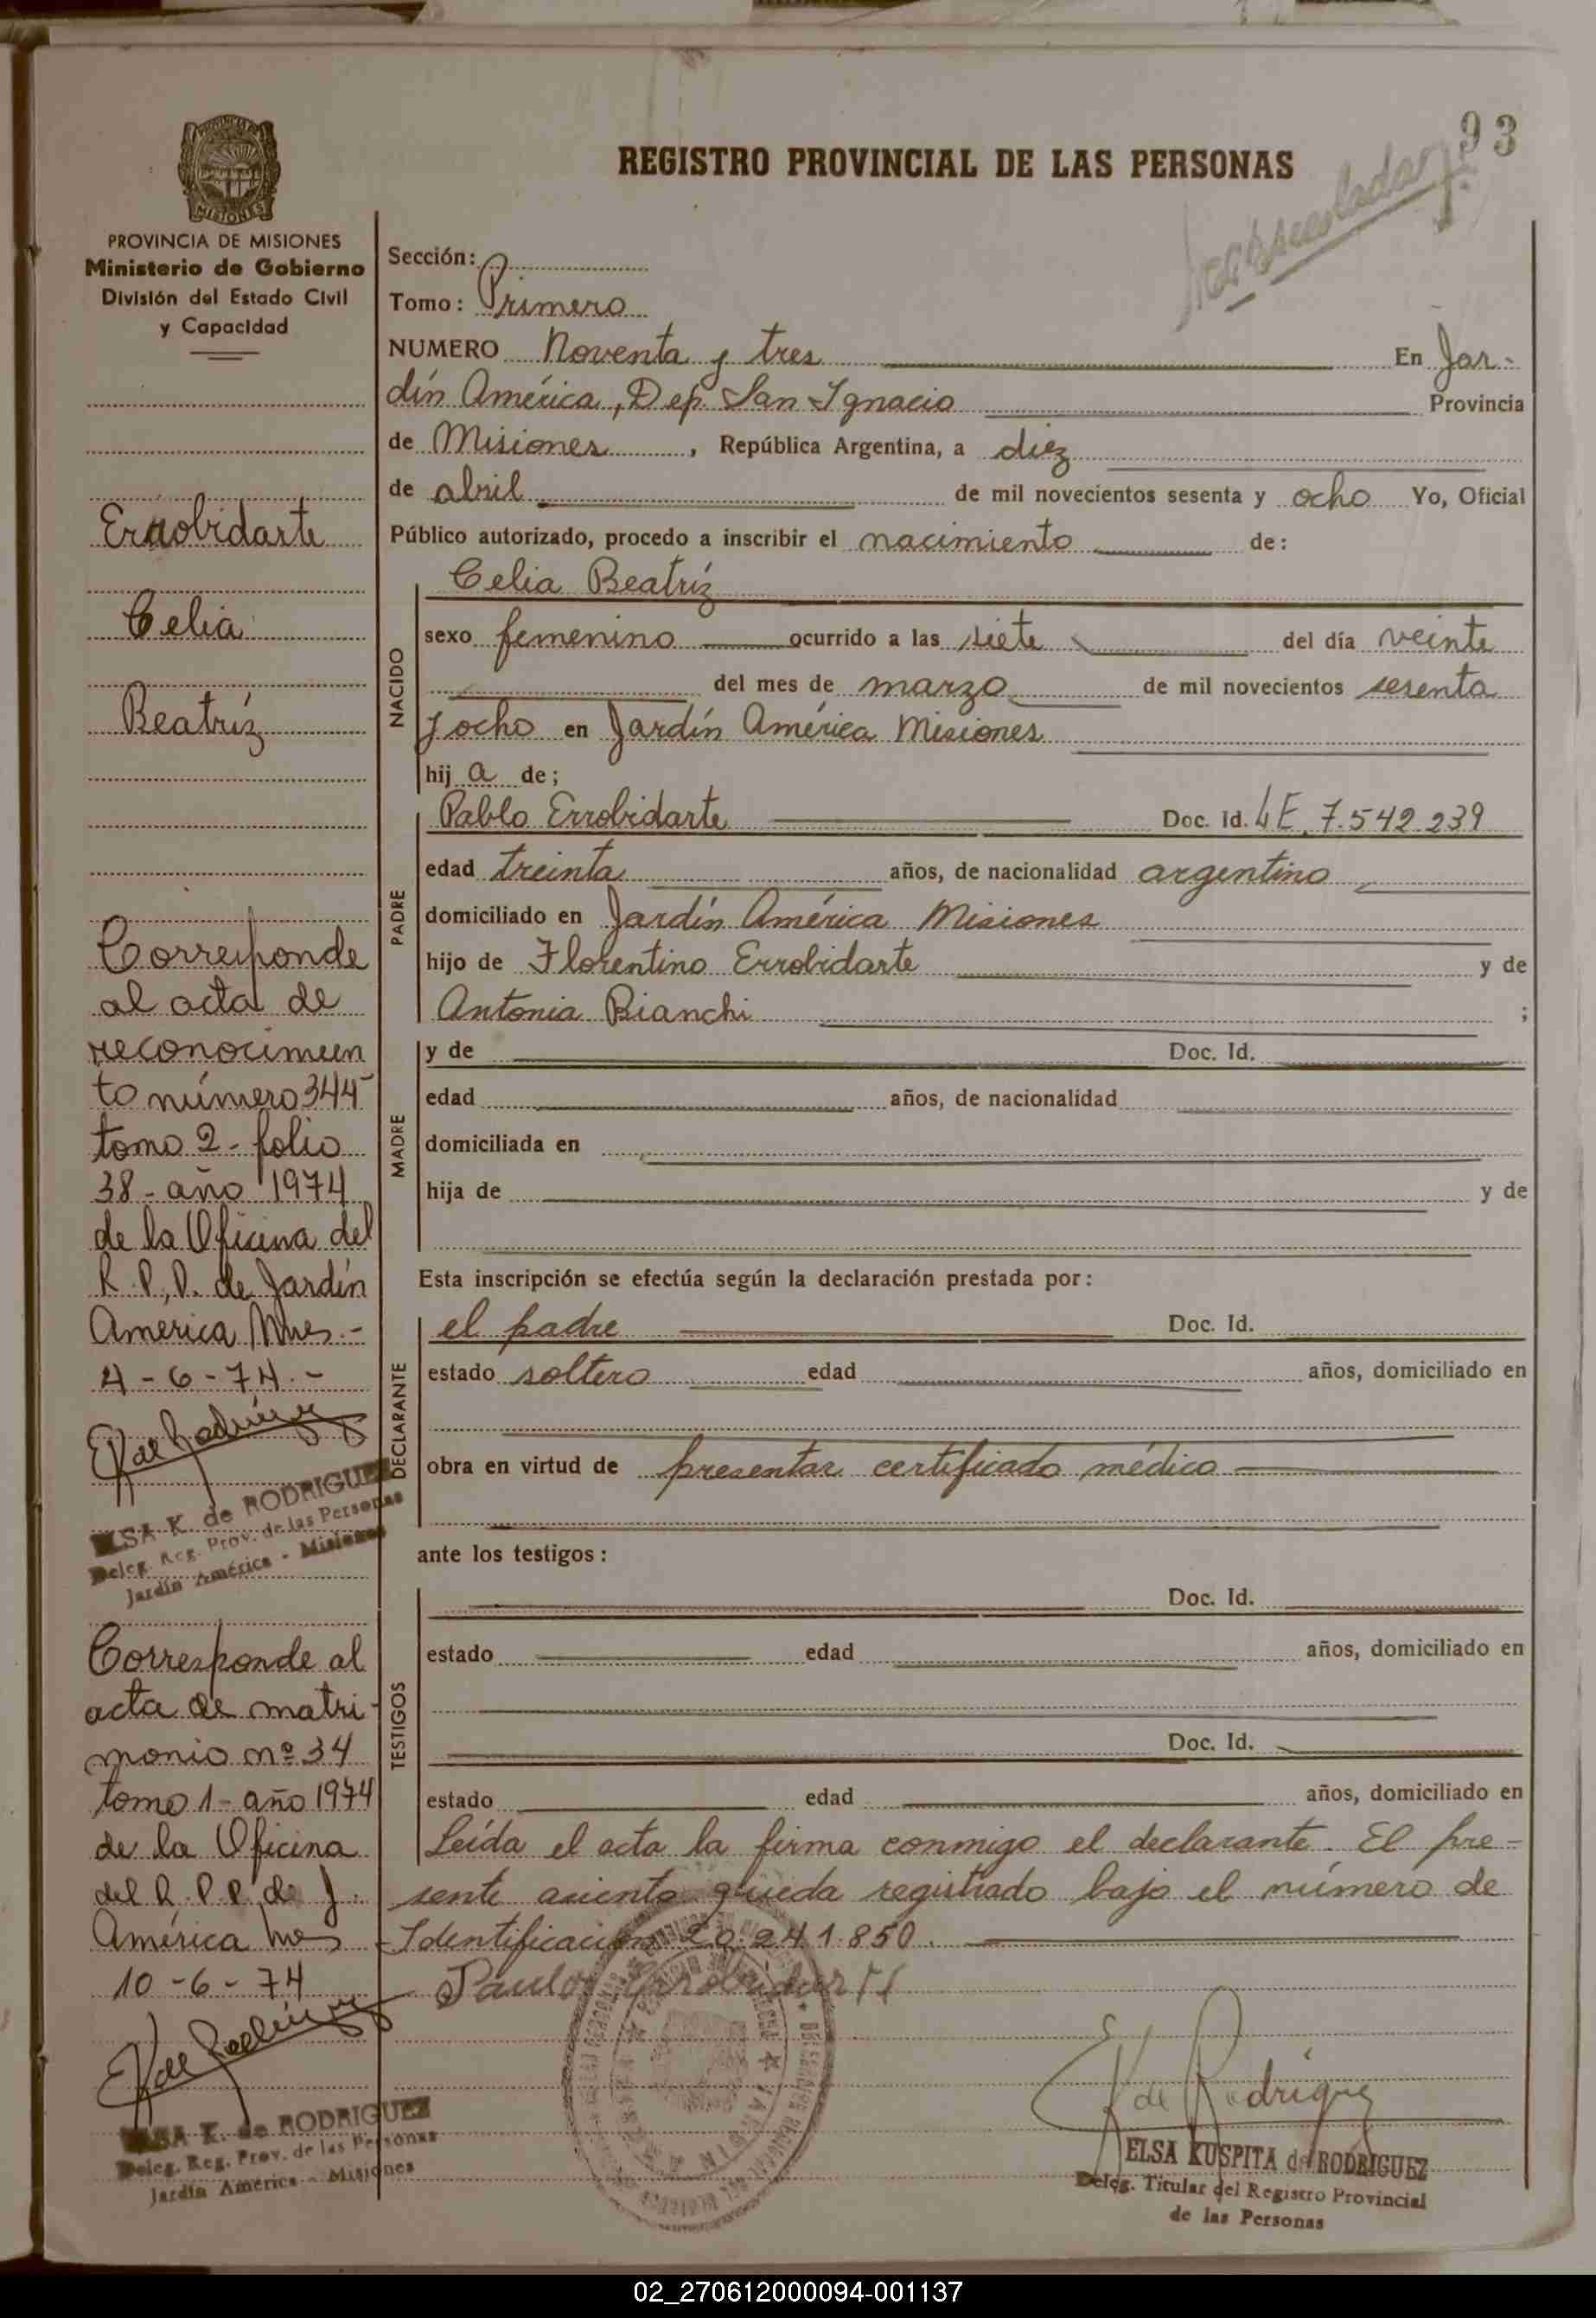 93
REGISTRO PROVINCIAL DE LAS PERSONAS
PROVINCIA DE MISIONES
Ministerio de Gobierno
División del Estado Civil
y Capacidad
Errobidarte
Celia
Beatríz
Corresponde
al acta de
reconocimien
to número 344-
tomo 2 - folio
38 - año 1974
de la Oficina del
R.P.P. de Jardín
America Mnes.-
4-6-74.-
EK de Rodríguez
ELSA K. de RODRIGUEZ
Deleg. Reg. Prov. de las Personas
Jardín América - Misiones
Corresponde al
acta de matri-
monio nº 34
tomo 1 - año 1974
de la Oficina
del R.P.P. de J.
América Mnes
10-6-74
EK de Rodríguez
ELSA K. de RODRIGUEZ
Deleg. Reg. Prov. de las Personas
Jardín América - Misiones
Sección:
Tomo: Primero
NUMERO Noventa y tres En Jar-
dín América, Dep. San Ignacio Provincia
de Misiones, República Argentina, a diez
de abril de mil novecientos sesenta y ocho Yo, Oficial
Público autorizado, procedo a inscribir el nacimiento de:
NACIDO
Celia Beatríz
sexo femenino ocurrido a las siete del día veinte
del mes de marzo de mil novecientos sesenta
y ocho en Jardín América Misiones
hij a de;
PADRE
Pablo Errobidarte Doc. id. LE. 7.542.239
edad treinta años, de nacionalidad argentino
domiciliado en Jardín América Misiones
hijo de Florentino Errobidarte y de
Antonia Bianchi ;
MADRE
y de Doc. Id.
edad años, de nacionalidad
domiciliada en
hija de y de
Esta inscripción se efectúa según la declaración prestada por:
DECLARANTE
el padre Doc. Id.
estado soltero edad años, domiciliado en
obra en virtud de presentar certificado médico
ante los testigos:
TESTIGOS
Doc. Id.
estado edad años, domiciliado en
Doc. Id.
estado edad años, domiciliado en
Leída el acta la firma conmigo el declarante. El pre-
sente asiento queda registrado bajo el número de
Identificación 20.241.850.
EK de Rodríguez
ELSA KUSPITA de RODRIGUEZ
Deleg. Titular del Registro Provincial
de las Personas
02_270612000094-001137